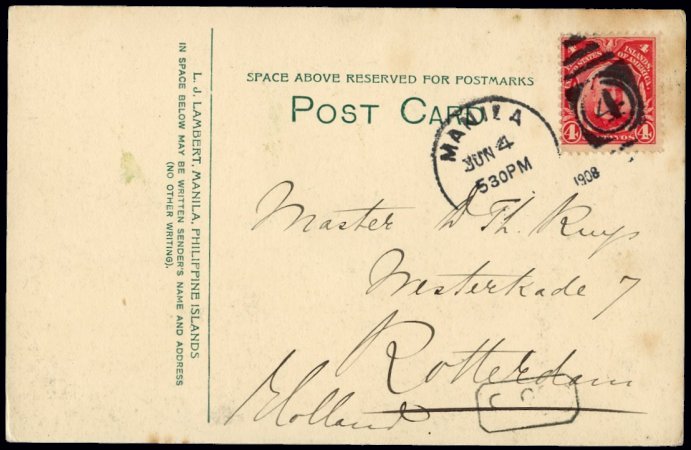 SPACE ABOVE RESERVED FOR POSTMARKS
POST CARD
MANILA
JUN 4
530PM
1908
4
4 4
ISLANDS
OF AMERICA.
4 4
L. J. LAMBERT, MANILA, PHILIPPINE ISLANDS
IN SPACE BELOW MAY BE WRITTEN SENDER'S NAME AND ADDRESS
(NO OTHER WRITING).
Master D Th. Ruys
Westerkade 7
Rotterdam
Holland